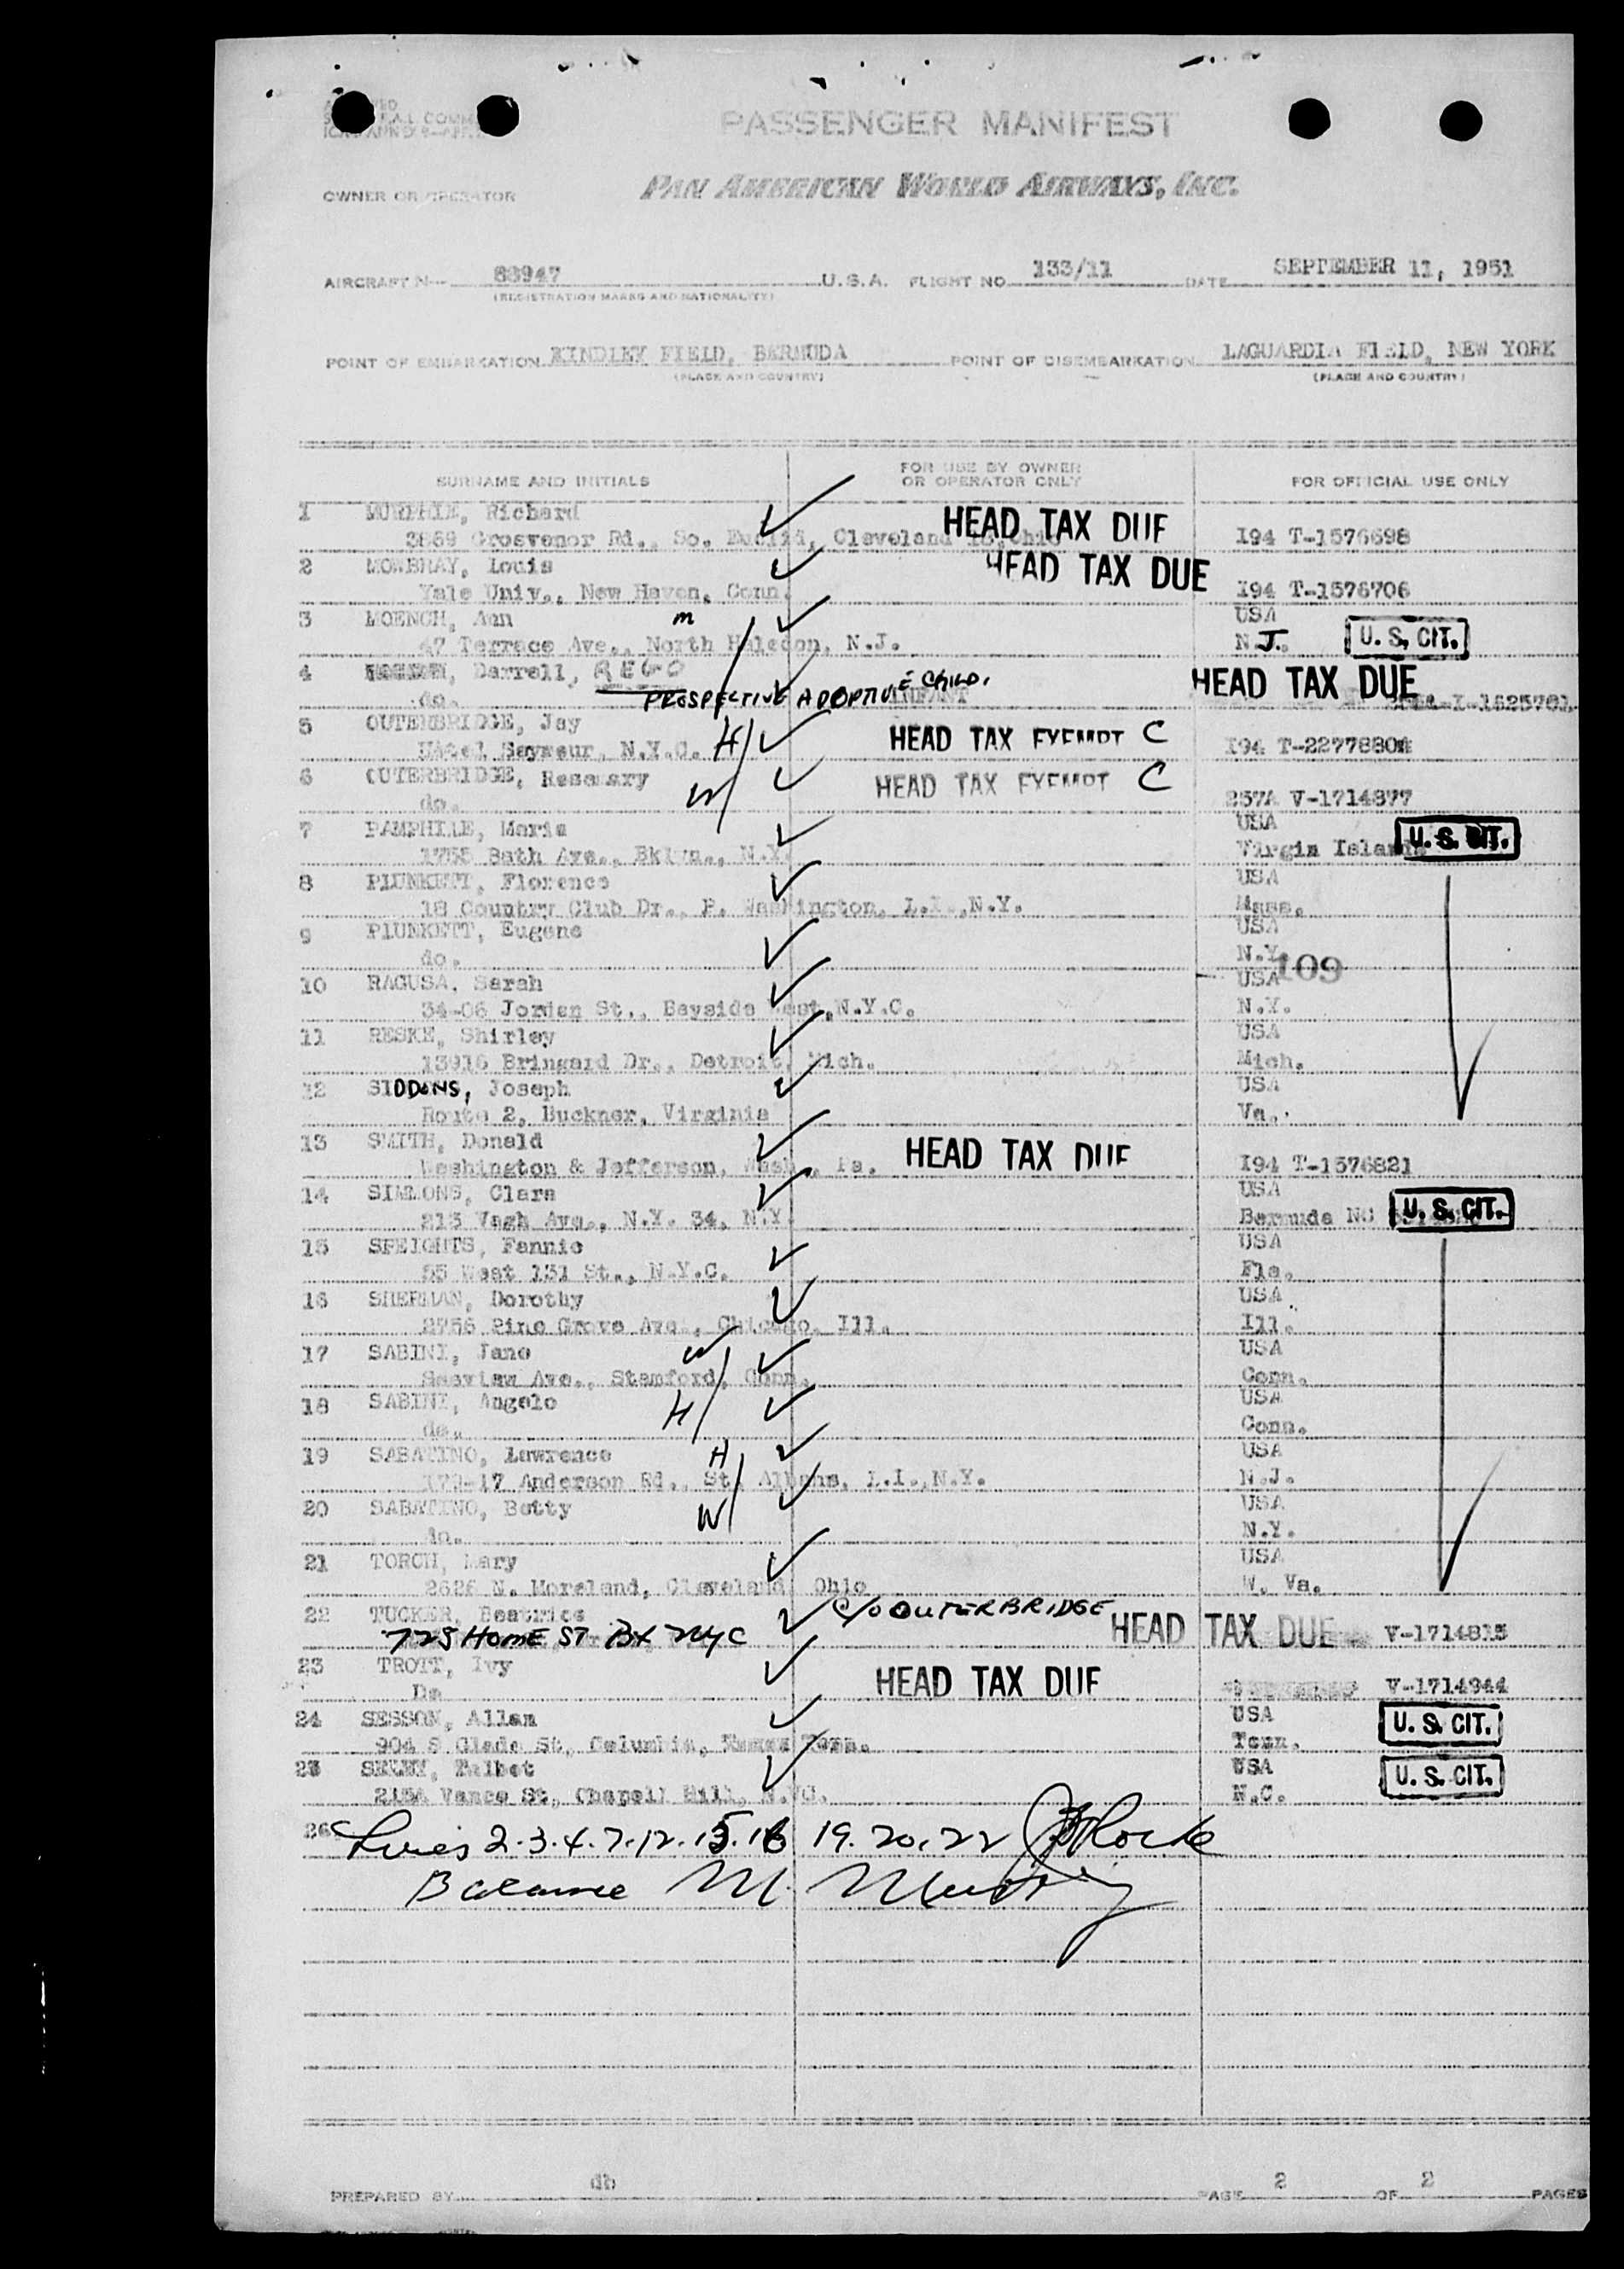 PASSENGER MANIFEST
OWNER OR OPERATOR PAN AMERICAN WORLD AIRWAYS, INC.
AIRCRAFT N— 88947 U.S.A. FLIGHT NO 133/11 DATE SEPTEMBER 11, 1951
(REGISTRATION MARKS AND NATIONALITY)
POINT OF EMBARKATION KINDLEY FIELD, BERMUDA POINT OF DISEMBARKATION LAGUARDIA FIELD, NEW YORK
(PLACE AND COUNTRY) (PLACE AND COUNTRY)
SURNAME AND INITIALS FOR USE BY OWNER OR OPERATOR ONLY FOR OFFICIAL USE ONLY
1 MURPHIE, Richard HEAD TAX DUE
3869 Grosvenor Rd., So. Euclid, Cleveland Ohio I94 T-1576698
2 MOWBRAY, Louis HEAD TAX DUE
Yale Univ., New Haven, Conn. I94 T-1576706
3 MOENCH, Ann m USA
47 Terrace Ave., North Haledon, N.J. N.J. U.S. CIT.
4 Darrell, REGO HEAD TAX DUE
do. PROSPECTIVE ADOPTIVE CHILD. INFANT I-1525761
5 OUTERBRIDGE, Jay HEAD TAX EXEMPT C
Hotel Seymour, N.Y.C. H I94 T-2277880
6 OUTERBRIDGE, Rosemary W HEAD TAX EXEMPT C
do. 257A V-1714877
7 PAMPHILE, Maria USA
1755 Bath Ave., Bklyn., N.Y. Virgin Islands U.S. CIT.
8 PLUNKETT, Florence USA
18 Country Club Dr., P. Washington, L.I.,N.Y. Mass.
9 PLUNKETT, Eugene USA
do. N.Y. 109
10 RAGUSA, Sarah USA
34-06 Jordan St., Bayside West,N.Y.C. N.Y.
11 RESKE, Shirley USA
13916 Bringard Dr., Detroit, Mich. Mich.
12 SIDDONS, Joseph USA
Route 2, Buckner, Virginia Va.
13 SMITH, Donald HEAD TAX DUE
Washington & Jefferson, Wash., Pa. I94 T-1576821
14 SIMMONS, Clara USA
213 Vagh Ave., N.Y. 34, N.Y. Bermuda NC U.S. CIT.
15 SPEIGHTS, Fannie USA
55 West 131 St., N.Y.C. Fla.
16 SHERMAN, Dorothy USA
2756 Pine Grove Ave., Chicago, Ill. Ill.
17 SABINI, Jane W USA
Seaview Ave., Stamford, Conn. Conn.
18 SABINI, Angelo H USA
do. Conn.
19 SABATINO, Lawrence H USA
172-17 Anderson Rd., St. Albans, L.I.,N.Y. N.J.
20 SABATINO, Betty W USA
do. N.Y.
21 TORCH, Mary USA
2628 N. Moreland, Cleveland, Ohio W. Va.
22 TUCKER, Beatrice C/O OUTERBRIDGE HEAD TAX DUE V-1714815
725 HOME ST BX NYC
23 TROTT, Ivy HEAD TAX DUE
Do V-1714944
24 SESSON, Allan USA
904 S Glade St, Columbia, Tenn. Tenn. U.S. CIT.
25 SELBY, Talbot USA
215A Vance St, Chapell Hill, N.C. N.C. U.S. CIT.
26 Lines 2.3.4.7.12.15.16 19.20.22
Balance M.
PREPARED BY db PAGE 2 OF 2 PAGES